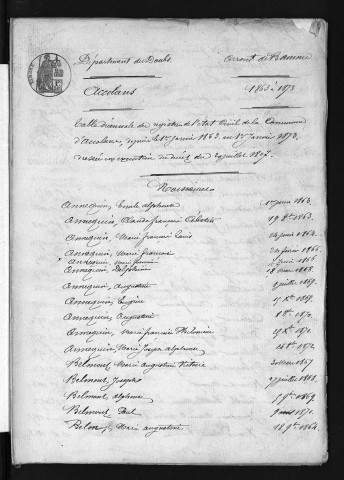 Département du Doubs
Arront de Baume
Accolans
1863 à 1873
Table décennale des registres de l'état Civil de la Commune
d'Accolans, depuis le 1er janvier 1863 au 1er janvier 1873,
dressée en exécution du décret du 20 juillet 1807.
Naissances
Annequin, Emile alphonse
janvier 1863.
Annequin, Claude françois Célestin
19 8bre 1863.
Annequin, Marie françois Louis
1864.
Annequin, Marie françoise
1866.
Annequin,
1866
Annequin, Delphine
18 mars 1868.
Annequin, Augustine
juillet 1869.
Annequin, Eugène
1869.
Annequin, Augustine
1870.
Annequin, Marie françoise Philomène
1870.
Annequin, Marie Joseph alphonse
1872.
Belmont, Marie Augustine Victoire
1867
Belmont, Joseph
juillet 1868.
Belmont, alphonse
1869.
Belmont, Paul
9 mars 1871.
Belon, Marie augustine
18 9bre 1864.